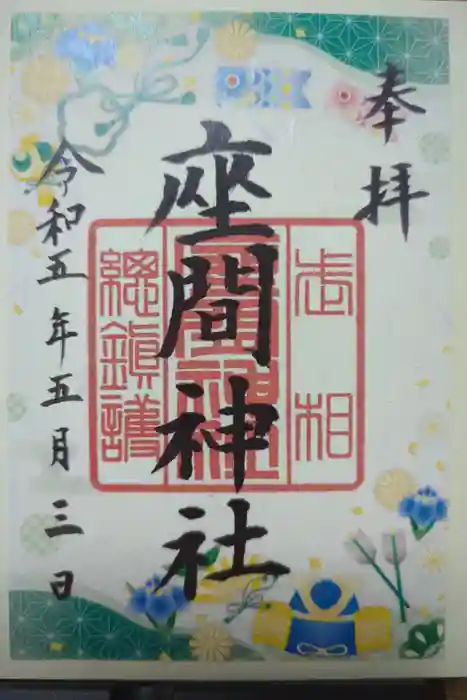 奉拝
座間神社
令和五年五月三日
相武
座間神社
総鎮護